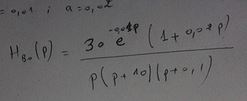 = 0,01 ; a = 0,02
H_Bo (p) = 30 e^(-0,01p) (1 + 0,02p) / p (p + 10) (p + 0,1)